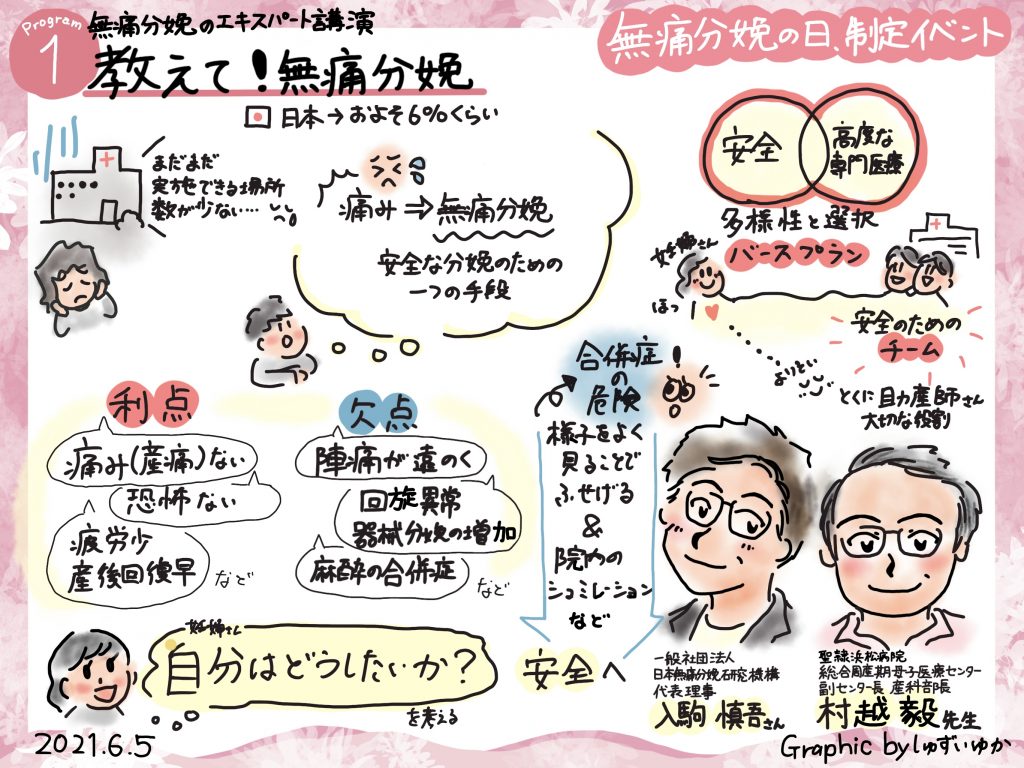 Program
1
無痛分娩のエキスパート講演
教えて！無痛分娩
無痛分娩の日、制定イベント
日本→およそ6%くらい
まだまだ
実施できる場所
数が少ない…
痛み⇒無痛分娩
安全な分娩のための
一つの手段
安全
高度な
専門医療
多様性と選択
バースプラン
妊婦さん
ほっ
安全のための
チーム
よりそい
とくに助産師さん
大切な役割
利点
痛み(産痛)ない
恐怖ない
疲労少
産後回復早
など
欠点
陣痛が遠のく
回旋異常
器械分娩の増加
麻酔の合併症
など
合併症！
の
危険
様子をよく
見ることで
ふせげる
&
院内の
シュミレーション
など
安全へ
妊婦さん
自分はどうしたいか？
を考える
一般社団法人
日本無痛分娩研究機構
代表理事
入駒 慎吾さん
聖隷浜松病院
総合周産期母子医療センター
副センター長 産科部長
村越 毅先生
2021.6.5
Graphic by しゅずいゆか